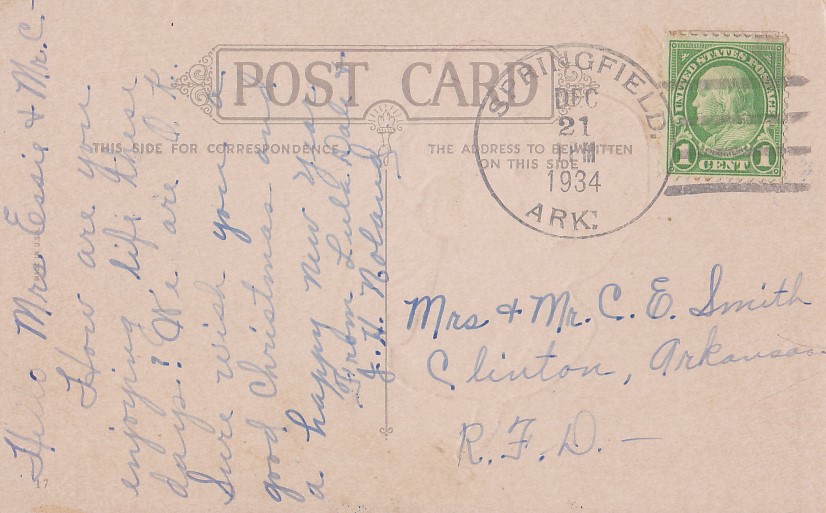 POST CARD
THIS SIDE FOR CORRESPONDENCE
THE ADDRESS TO BE WRITTEN
ON THIS SIDE
SPRINGFIELD.
DEC
21
PM
1934
ARK.
UNITED STATES POSTAGE
1 CENT 1
Hello Mrs Essie & Mr. C. -
How are you
enjoying life these
days? We are O.K.
Sure wish you a
good Christmas and
a happy new year
From Lula Dale &
J. H. Noland
Mrs & Mr. C. E. Smith
Clinton, Arkansas
R. F. D. —